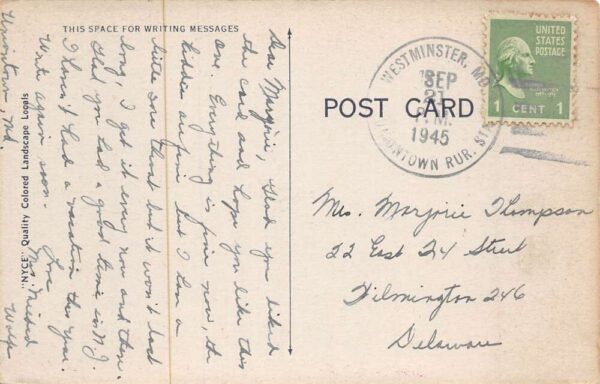 THIS SPACE FOR WRITING MESSAGES
Dear Marjorie, Glad you liked
the card and hope you like this
one. Everything is fine now, the
kiddies are fine but I have a
little sore throat but it won't last
long, I get it every now and then.
Glad you had a good time in N.J.
I haven't had a vacation this year.
Write again soon.
Love
Mrs.
Wolfe
Uniontown, Md.
"NYCE" Quality Colored Landscape Locals
POST CARD
WESTMINSTER, MD.
SEP
21
P.M.
1945
UNIONTOWN RUR. STA.
UNITED
STATES
POSTAGE
1 CENT 1
Mrs. Marjorie Thompson
22 East 24 Street
Wilmington 246
Delaware